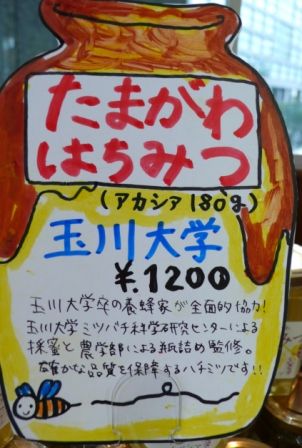 たまがわ
はちみつ
(アカシア180g)
玉川大学
¥.1200
玉川大学卒の養蜂家が全面的協力!
玉川大学ミツバチ科学研究センターによる
採蜜と農学部による瓶詰め監修。
確かな品質を保障するハチミツです!!